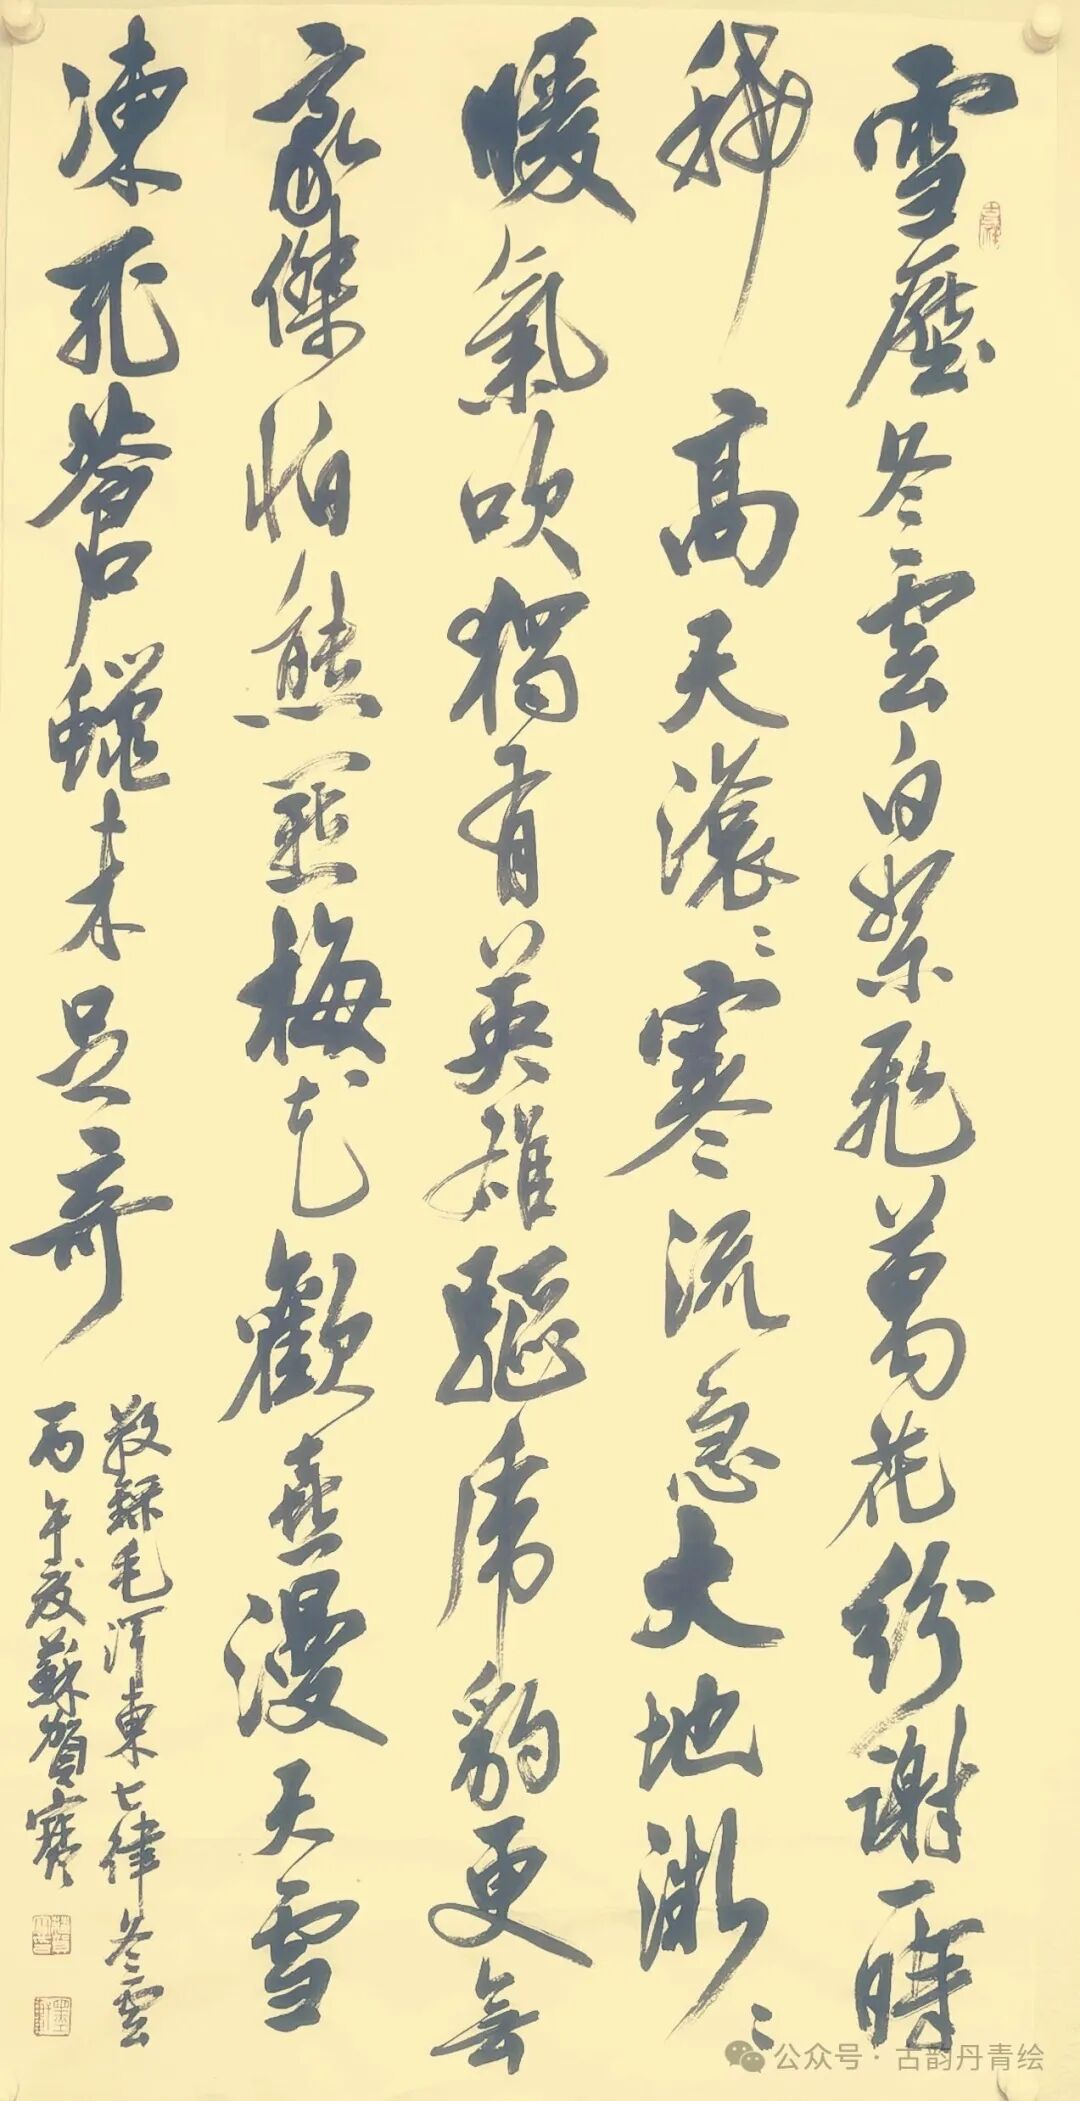 雪壓冬雲白絮飛萬花紛謝一時
稀高天滾〻寒流急大地微〻
暖氣吹獨有英雄驅虎豹更無
豪傑怕熊羆梅花歡喜漫天雪
凍死蒼蠅未足奇
敬錄毛澤東七律冬雲
丙午歲蘇賀
公众号·古韵丹青绘